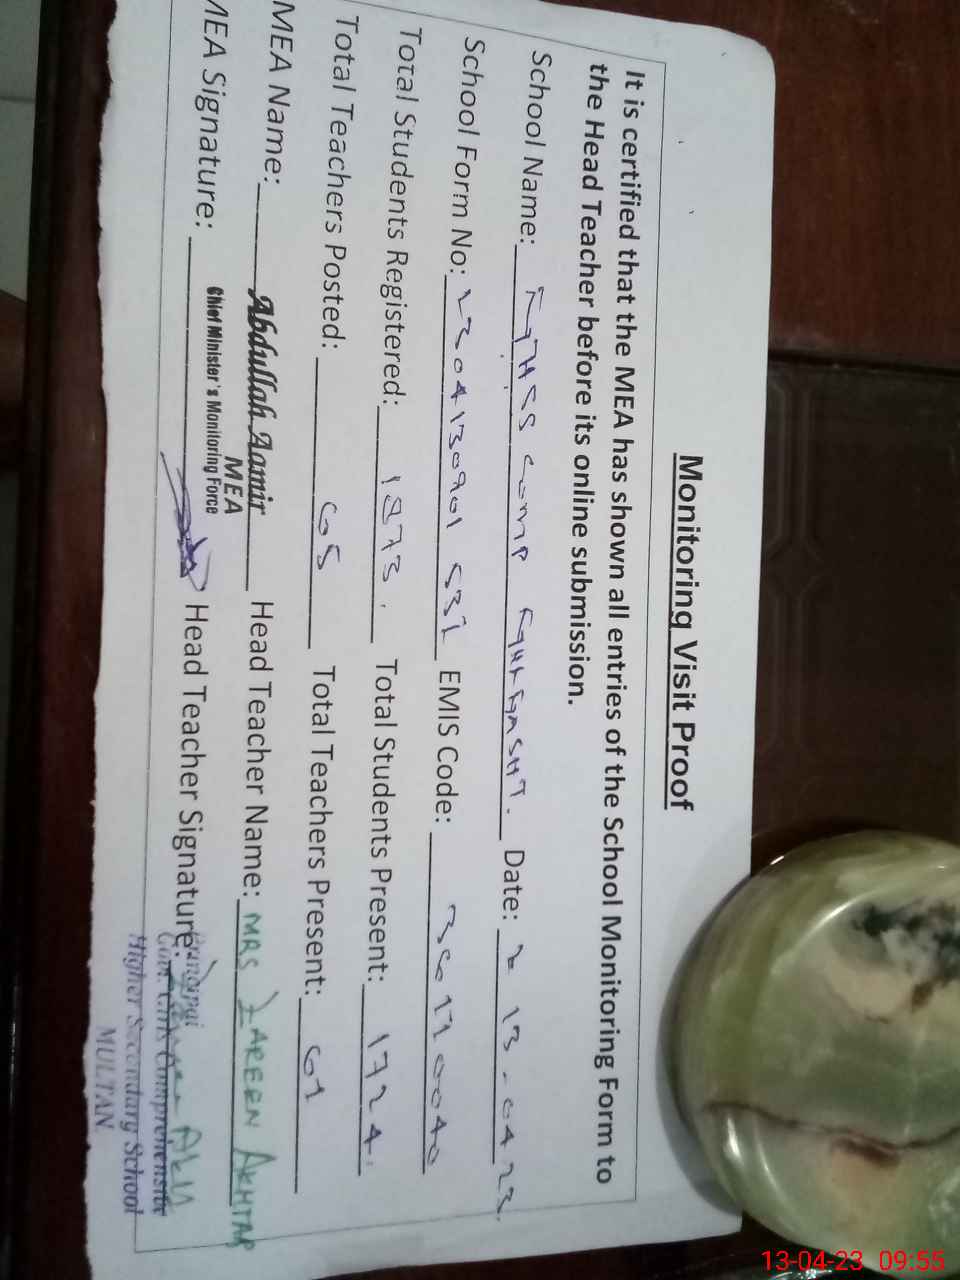 Monitoring Visit Proof
It is certified that the MEA has shown all entries of the School Monitoring Form to
the Head Teacher before its online submission.
School Name: GGHSS COMP Date: 13-04-23
School Form No: EMIS Code:
Total Students Registered: 1873. Total Students Present: 1724.
Total Teachers Posted: 65 Total Teachers Present: 61
MEA Name: Abdullah Aamir Head Teacher Name: MRS ZAREEN AKHTAR
MEA
Chief Minister's Monitoring Force
MEA Signature: Head Teacher Signature:
Principal
Govt. Girls Comprehensive
Higher Secondary School
MULTAN
13-04-23 09:55